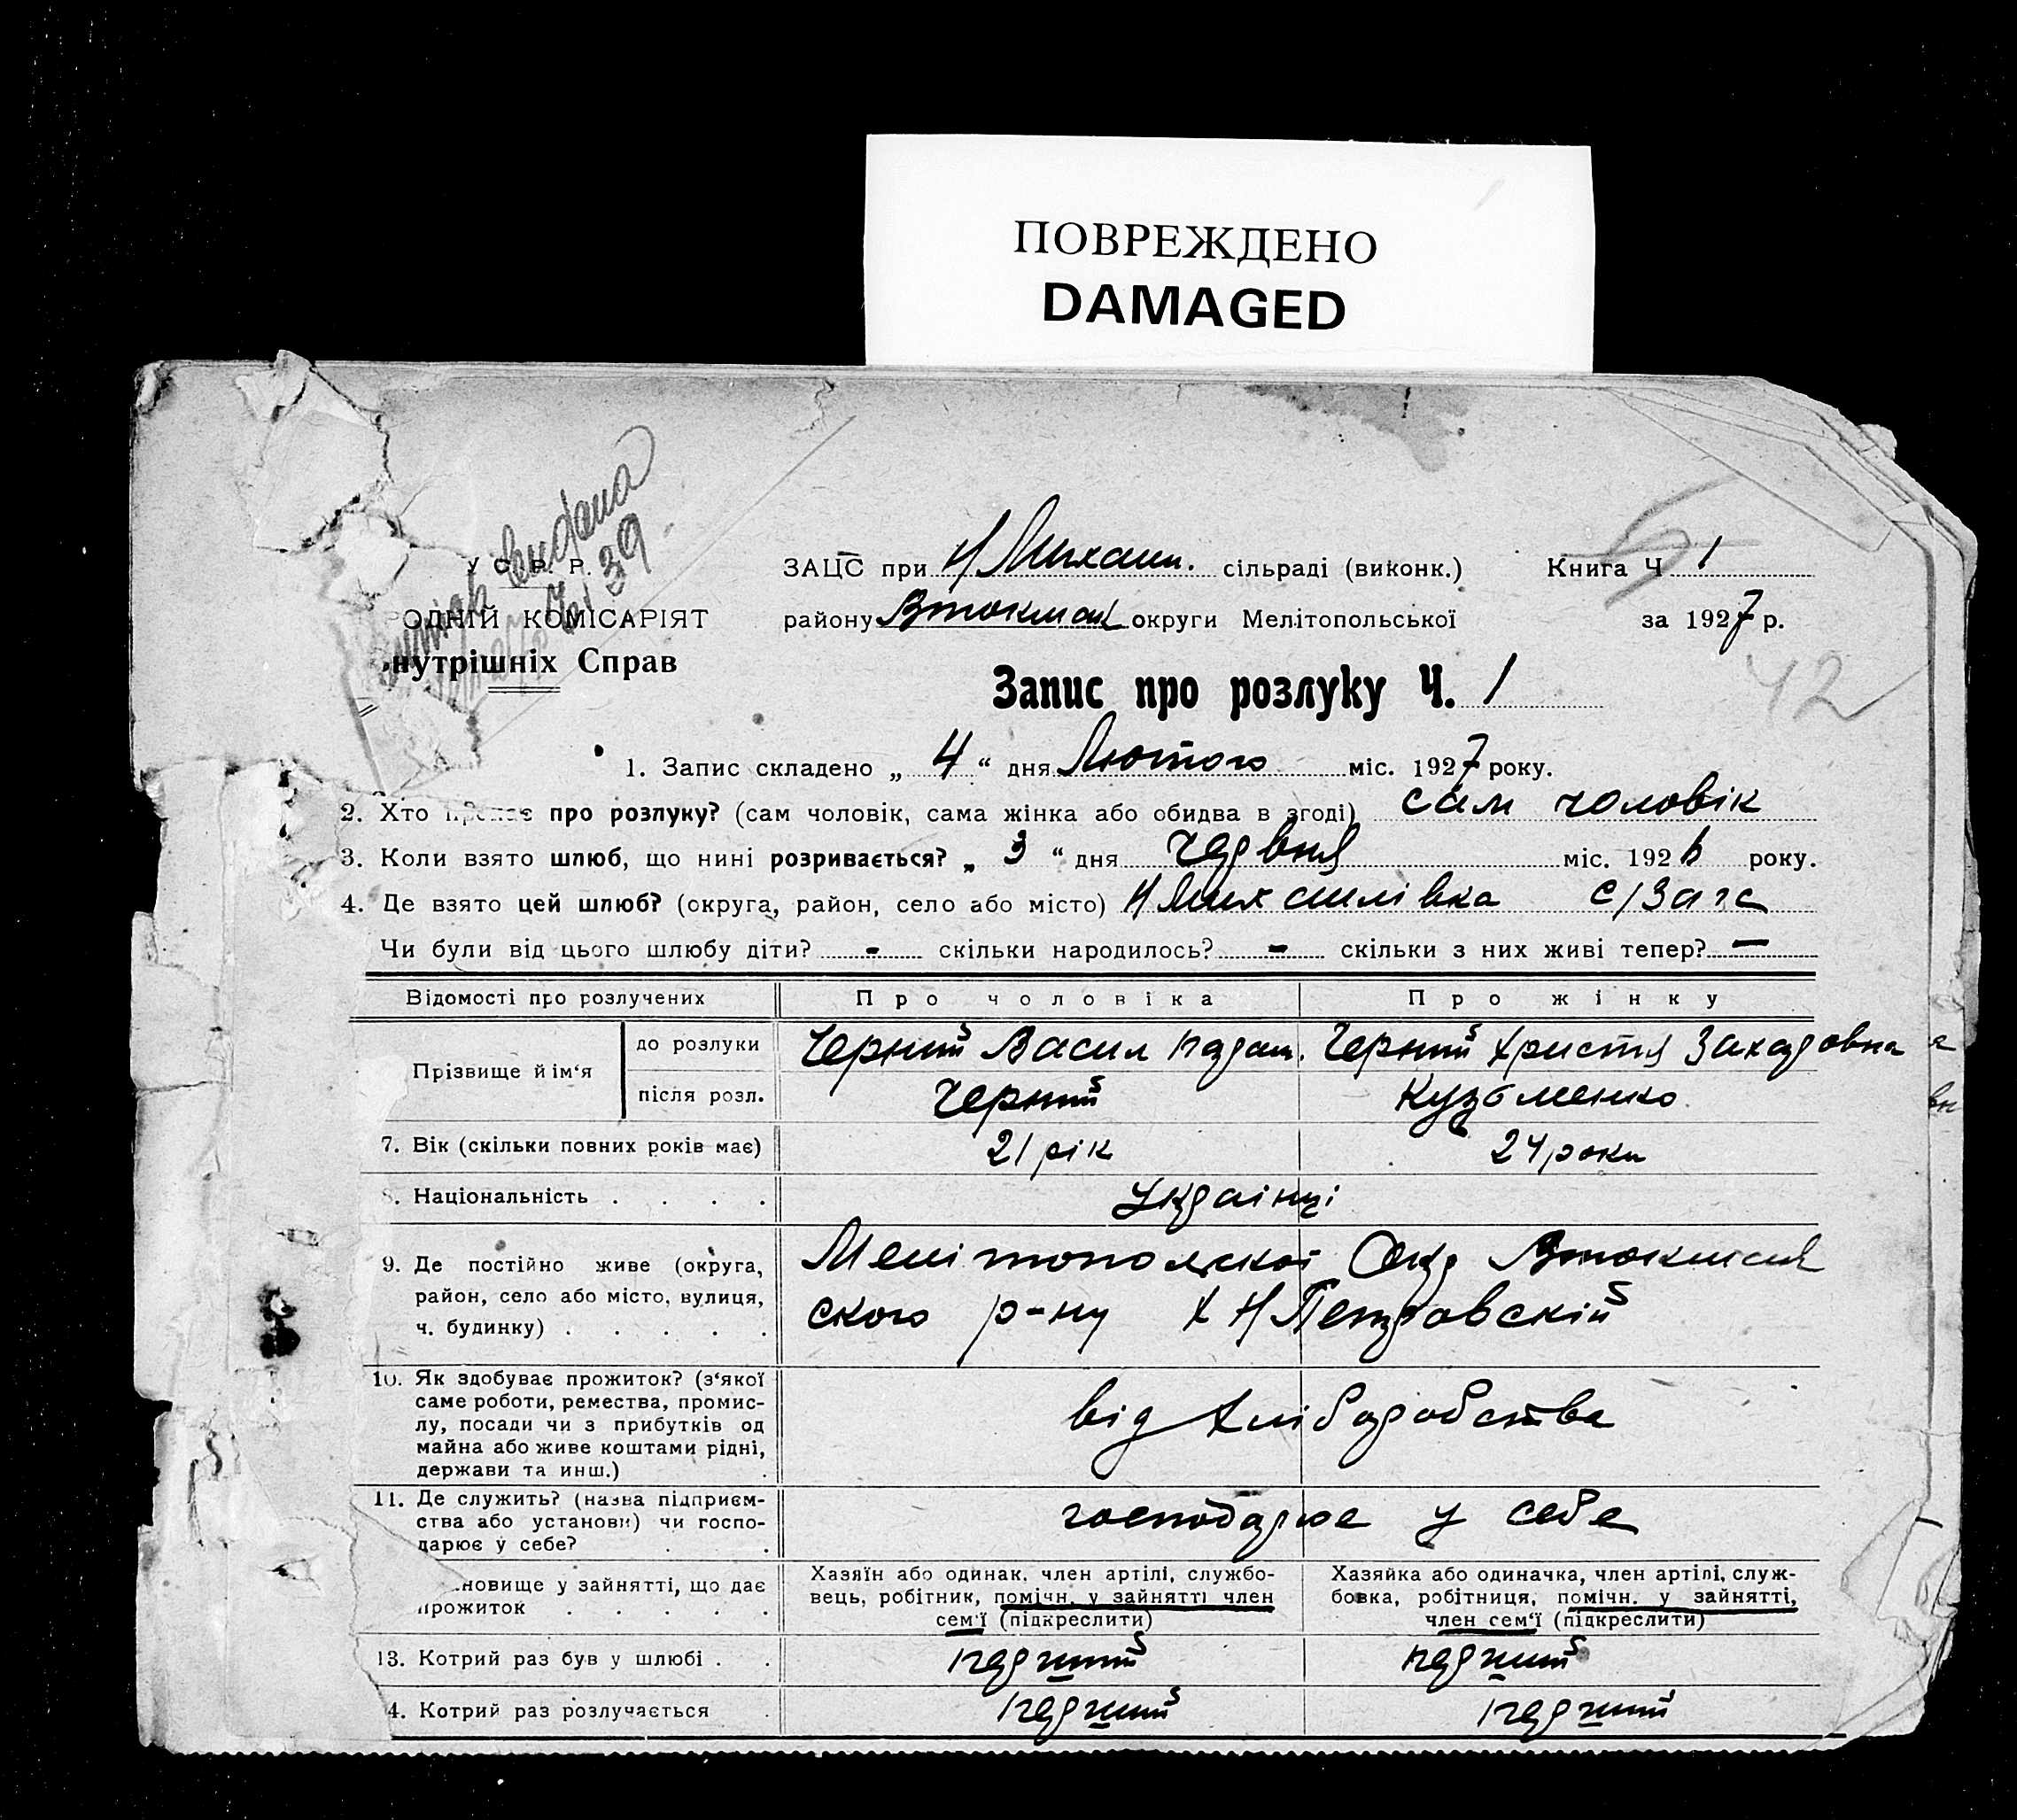 ПОВРЕЖДЕНО
DAMAGED
видана
39
У С. Р. Р.
ОДНІЙ КОМІСАРІЯТ
нутрішніх Справ
ЗАЦС при Н Михаил. сільраді (виконк.)
Книга Ч 1
району Втокмак округи Мелітопольської
за 1927 р.
42
Запис про розлуку Ч. 1
1. Запис складено „ 4 “ дня Лютого міс. 1927 року.
2. Хто про розлуку? (сам чоловік, сама жінка або обидва в згоді) сам чоловік
3. Коли взято шлюб, що нині розривається? „ 3 “ дня червня міс. 1926 року.
4. Де взято цей шлюб? (округа, район, село або місто) Н Михаилівка с/Загс
Чи були від цього шлюбу діти? - скільки народилось? - скільки з них живі тепер? —
Відомості про розлучених
Про чоловіка
Про жінку
Прізвище й ім‘я
до розлуки
Черний Васил
Черний Христя Захаровна
після розл.
Черний
Кузьменко
7. Вік (скільки повних років має)
21 рік
24 роки
8. Національність . . . .
Українці
9. Де постійно живе (округа,
район, село або місто, вулиця,
ч. будинку) . . . . .
Мелітополской Окр Втокмац
ского р-ну х Н Петровский
10. Як здобуває прожиток? (з‘якої
саме роботи, ремества, промис-
лу, посади чи з прибутків од
майна або живе коштами рідні,
держави та инш.) .
від хліборобства
11. Де служить? (назва підприєм-
ства або установи) чи госпо-
дарює у себе? . .
господарює у себе
новище у зайнятті, що дає
прожиток . . . . .
Хазяїн або одинак, член артілі, службо-
вець, робітник, помічн. у зайнятті член
сем‘ї (підкреслити)
Хазяйка або одиначка, член артілі, служ-
бовка, робітниця, помічн. у зайнятті,
член сем‘ї (підкреслити)
13. Котрий раз був у шлюбі . .
перший
перший
4. Котрий раз розлучається .
перший
перший